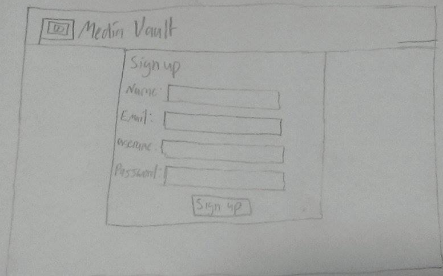 Media Vault
Sign up
Name:
Email:
Username:
Password:
Sign up